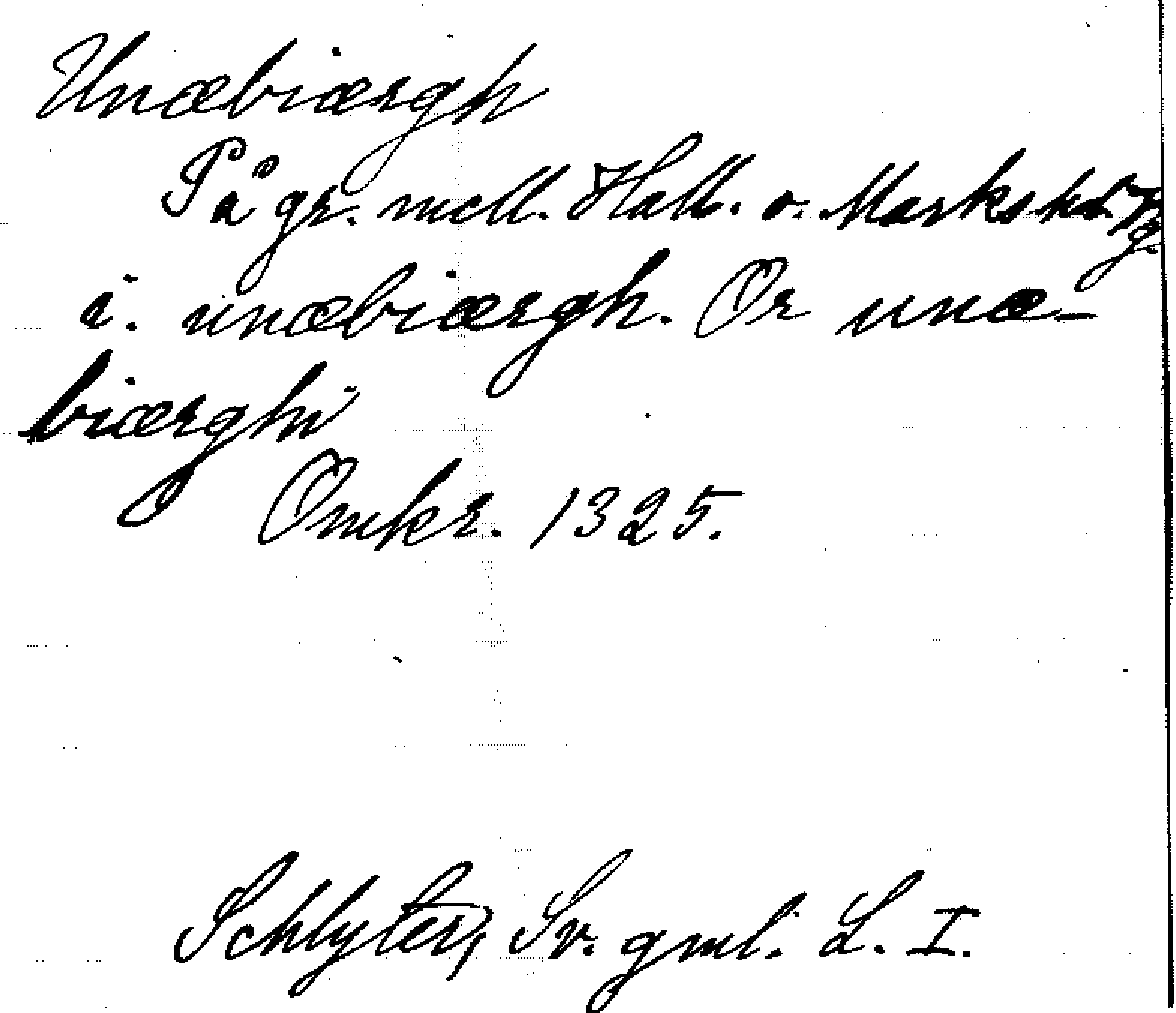 Unæbiærgh
På gr. mell. Hall. o. Marks hd Vg.
i. unæbiærgh. Or unæ-
biærghi
Omkr. 1325.
Schlyter, Sv. gml. L. I.